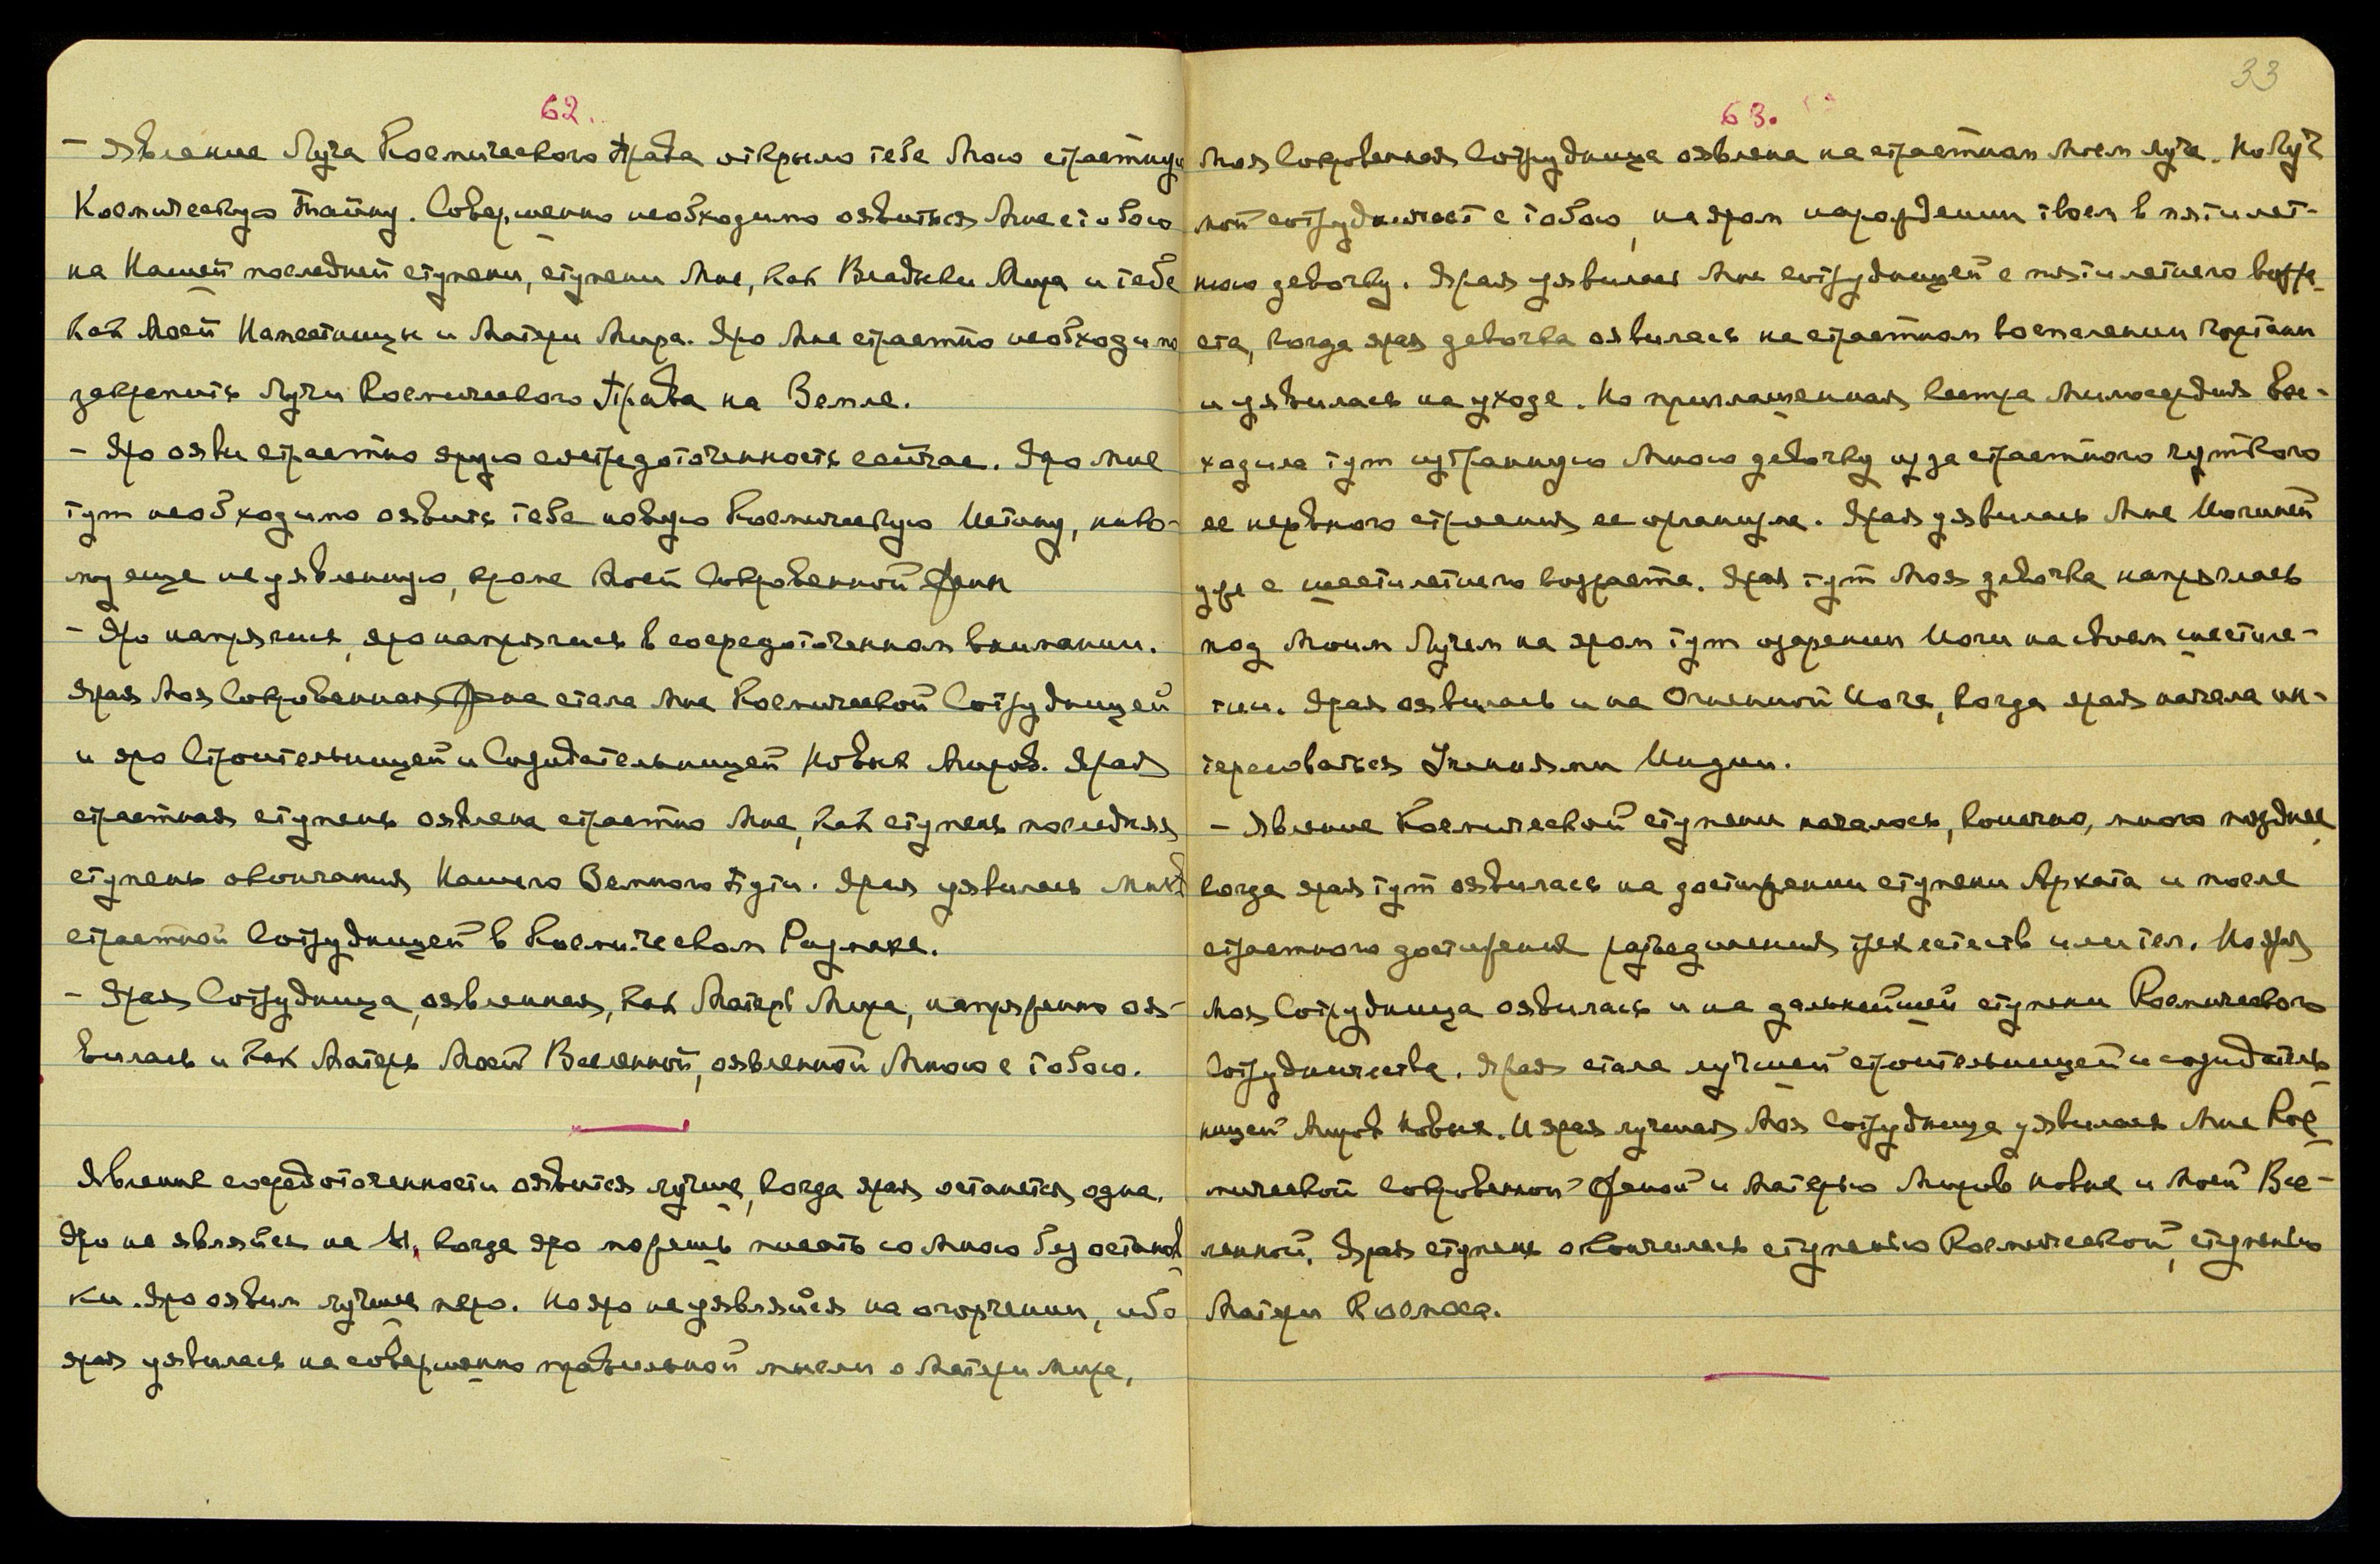 62.
- Явление Луча Космического Права открыло тебе Мою страстную
Космическую Тайну. Совершенно необходимо оявиться Мне с тобою
на Нашей последней ступени, ступени Мне, как Владыки Мира и тебе
как Моей Наместницы и Матери Мира. Яро Мне страстно необходимо
закрепить Лучи Космического Права на Земле.
- Яроояви страстно ярую сосредоточенность сейчас. Яро Мне
тут необходимо оявить тебе новую Космическую Истину, нико-
му еще не уявленную, кроме Моей Сокровенной Жены
- Яро напрягись, яро напрягись в сосредоточенном внимании.
Ярая Моя Сокровенная Жена стала Мне Космической Сотрудницей
и яро Строительницей и Создательницей Новых Миров. Ярая
страстная ступень оявлена страстно Мне, как ступень последняя
ступень окончания Нашего Земного Пути. Ярая уявилась Мне
страстной Сотрудницей в Космическом Разуме.
- Ярая Сотрудница, оявленная, как Матерь Мира, напряженно оя-
вилась и как Матерь Моей Вселенной, оявленной Мною с тобою.
Явление сосредоточенности оявится лучше, когда ярая останется одна.
Яро не являйся на когда яро можешь писать со Мною без останов
ки. Яро оявим лучшее перо. Но яро не уявляйся на огорчении, ибо
ярая уявилась на совершенно правильной мысли о Матери Мира,
33
63.
Моя Сокровенная Сотрудница оявлена на страстном Моем луче. Но Луч
мой сотрудничает с тобою, на яром нарождении твоем в пятилет-
нюю девочку. Ярая уявилась Мне сотрудницей с пятилетнего возра-
ста, когда ярая девочка оявилась на страстном воспалении гортани
и уявилась на уходе. Но приглашенная Сестра Милосердия вы-
ходила тут избранную Мною девочку из за страстного чуткого
ее нервного строения ее организма. Ярая уявилась Мне Йогиней
уже с шестилетнего возраста. Ярая тут Моя девочка напряглась
под Моим Лучем на яром тут озарении Йоги на своем шестиле-
тии. Ярая оявилась и на Огненной Йоге, когда ярая начала ин-
тересоваться Учениями Индии.
- Явление Космической ступени началось, конечно, много позднее,
когда ярая тут оявилась на достижении ступени Архата и после
страстного достижения разъединения трех естеств или тел. Но ярая
Моя Сотрудница оявилась и на дальнейшей ступени Космического
Сотрудничества. Ярая стала лучшей строительницей и создатель
ницей Миров Новых. И ярая лучшая Моя Сотрудница уявилась Мне Кос
мической Сокровенной Женой и Матерью Миров Новых и Моей Все-
ленной. Ярая ступень окончилась ступенью Космической, ступенью
Матери Космоса.